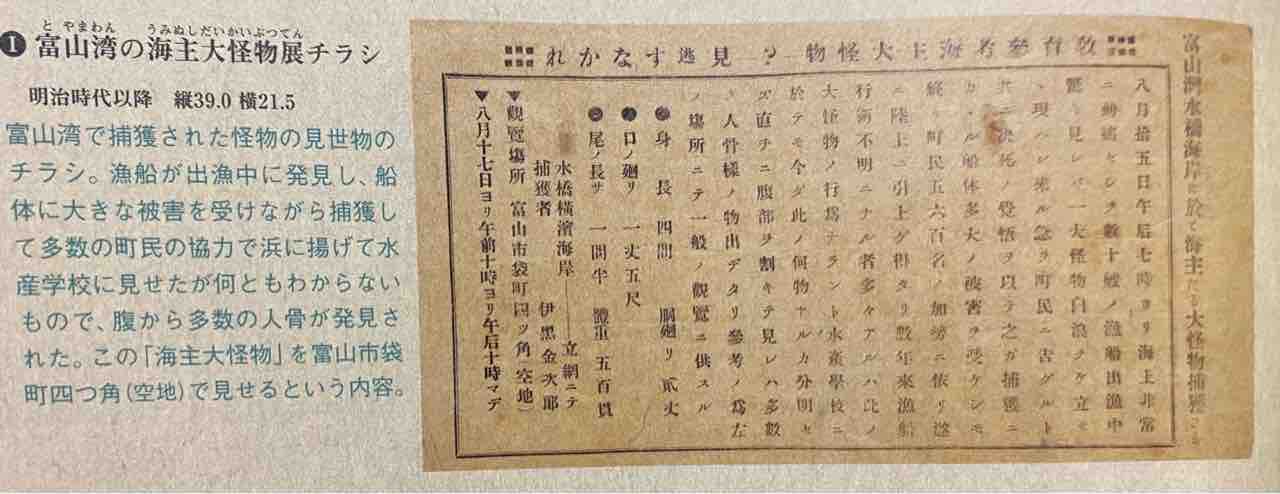 ❶富山湾の海主大怪物展チラシ
とやまわん うみぬしだいかいぶつてん
明治時代以降 縦39.0 横21.5
富山湾で捕獲された怪物の見世物の
チラシ。漁船が出漁中に発見し、船
体に大きな被害を受けながら捕獲し
て多数の町民の協力で浜に揚げて水
産学校に見せたが何ともわからない
もので、腹から多数の人骨が発見さ
れた。この「海主大怪物」を富山市袋
町四つ角(空地)で見せるという内容。
敎育參考海主大怪物―?―見逃すなかれ
富山灣水橋海岸ニ於て海主たる大怪物捕獲さる
八月拾五日午后七時ヨリ海上非常
ニ動搖セシヲ數十艘ノ漁船出漁中
驚キ見レバ一大怪物白浪ヲケ立テ
現ハレ來ル急ヲ町民ニ告グルト
共ニ決死ノ覺悟ヲ以テ之ガ捕獲ニ
カヽル船体多大ノ被害ヲ受ケシモ
終ニ町民五六百名ノ加勞ニ依リ遂
ニ陸上ニ引上ゲ得タリ數年來漁船
行衛不明ニナル者多々アルハ此ノ
大怪物ノ行爲ナラント水產學校ニ
於テモ今ダ此ノ何物ナルカ分明セ
ズ直チニ腹部ヲ割キテ見レハ多數
ノ人骨樣ノ物出デタリ參考ノ爲左
ノ塲所ニテ一般ノ觀覽ニ供スル
身長 四間 胴廻リ 貳丈
口ノ廻リ 一丈五尺
尾ノ長サ 一間半 體重 五百貫
水橋橫濱海岸――立網ニテ
捕獲者 伊黒金次郎
▼觀覽塲所 富山市袋町四ツ角(空地)
▼八月十七日ヨリ午前十時ヨリ午后十時マデ